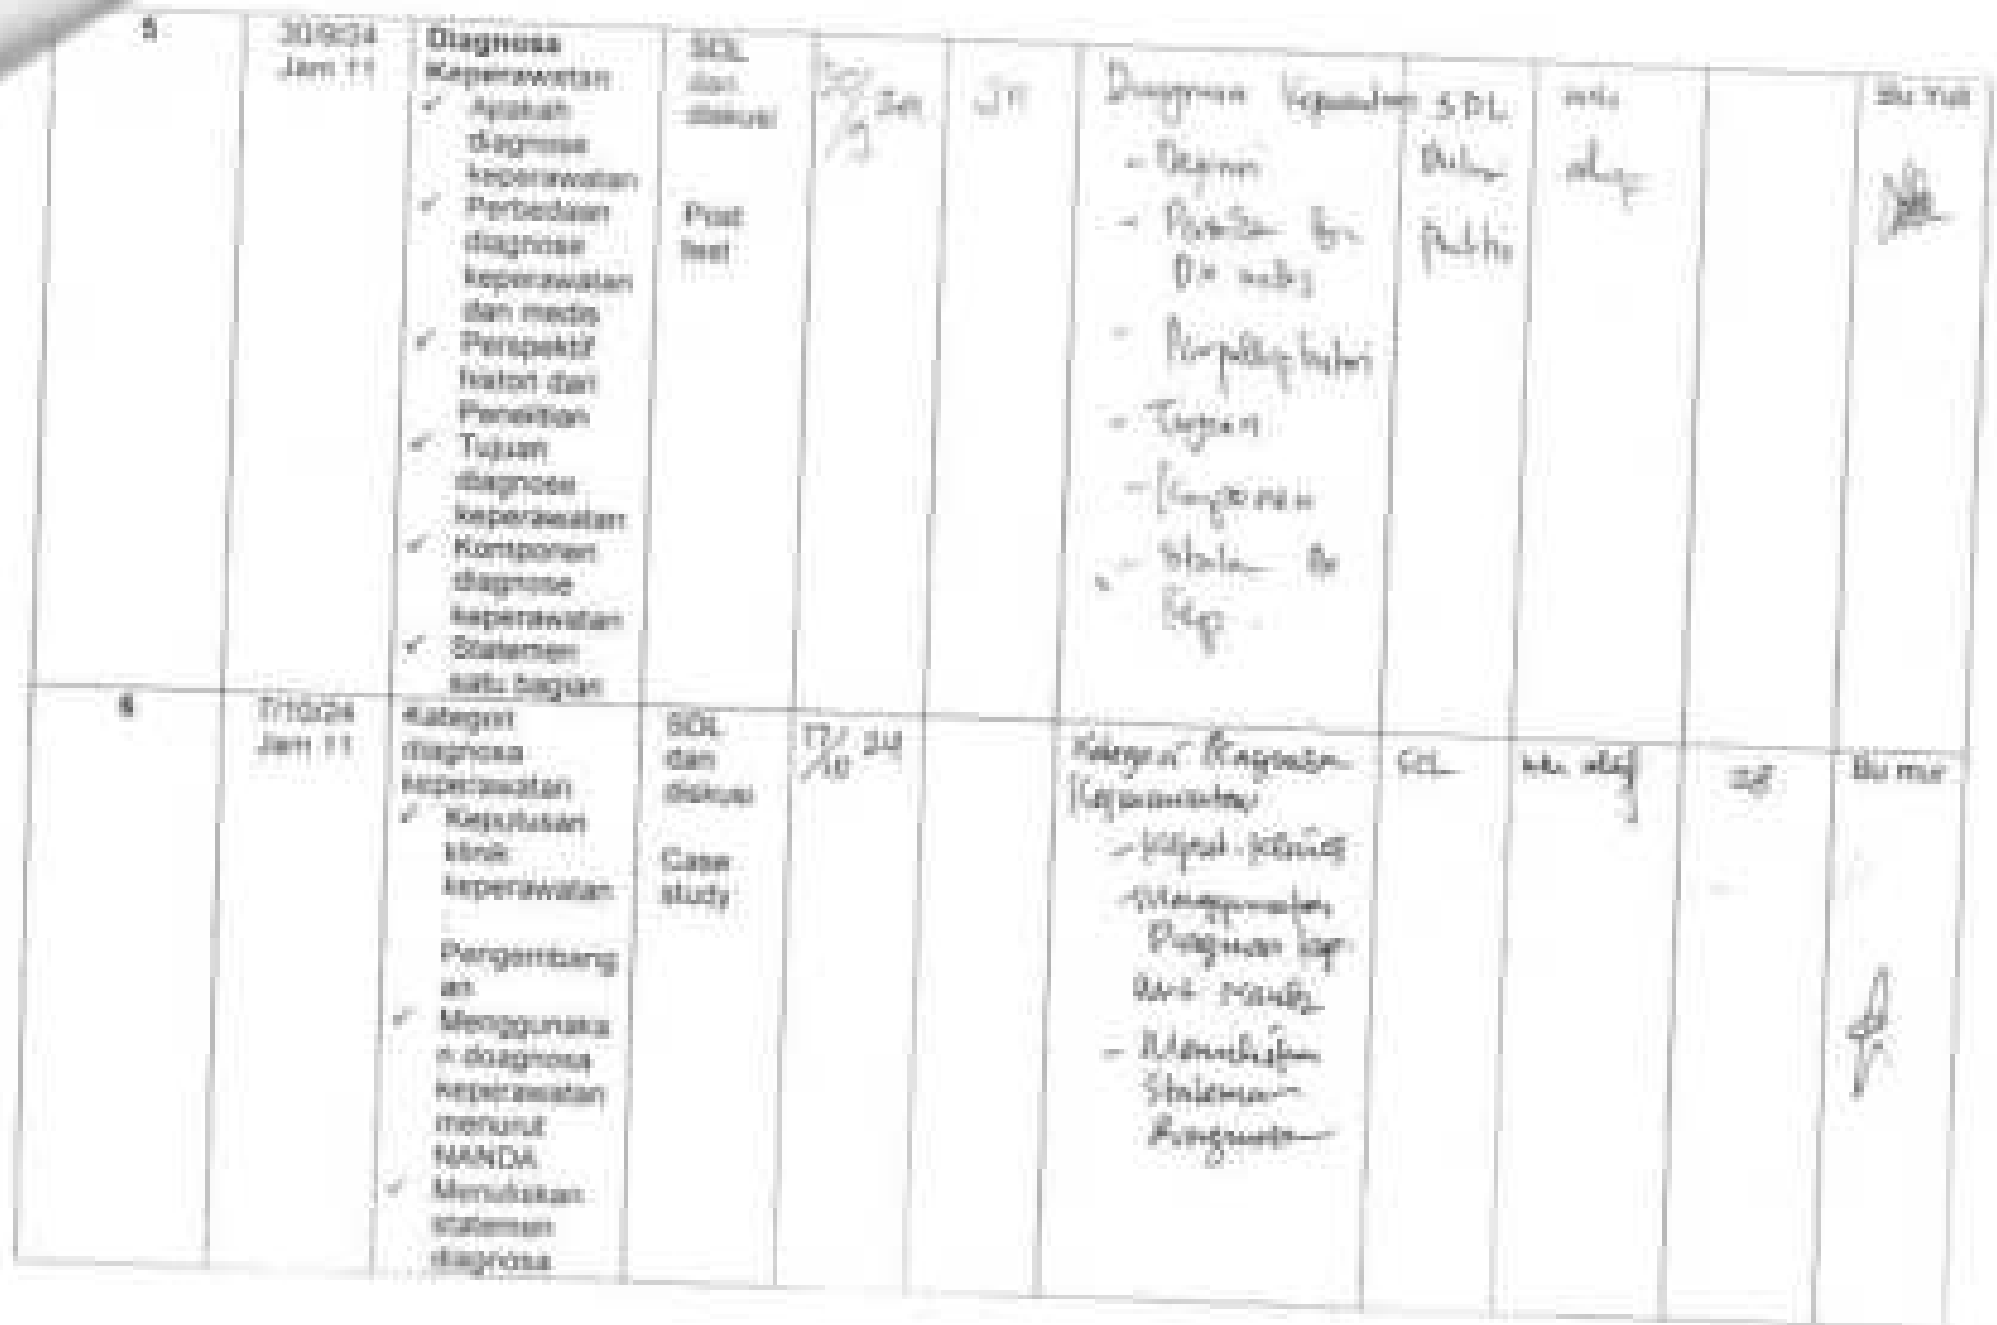 5
30/9/24
Jam 11
Diagnosa
Keperawatan
✓ Apakah
diagnose
keperawatan
✓ Perbedaan
diagnose
keperawatan
dan medis
✓ Perspektif
histori dari
Penelitian
✓ Tujuan
diagnose
keperawatan
✓ Komponen
diagnose
keperawatan
✓ Statemen
satu bagian
SDL
dan
diskusi
Post
test
30/9 24
Diagnosa Keperawatan
-
-
Dx medis
-
- Tujuan
- Komponen
-
Kep.
SDL
6
7/10/24
Jam 11
Kategori
diagnosa
keperawatan
✓ Keputusan
klinik
keperawatan
Pengembang
an
✓ Menggunaka
n doagnosa
keperawatan
menurut
NANDA
✓ Menuliskan
statemen
diagnosa
SDL
dan
diskusi
Case
study
24
Kategori Diagnosa
Keperawatan
- Keput. Klinis
- Menggunakan
Diagnosa kep
- Menuliskan
Statemen
Diagnosa
SDL
28
Bu mir